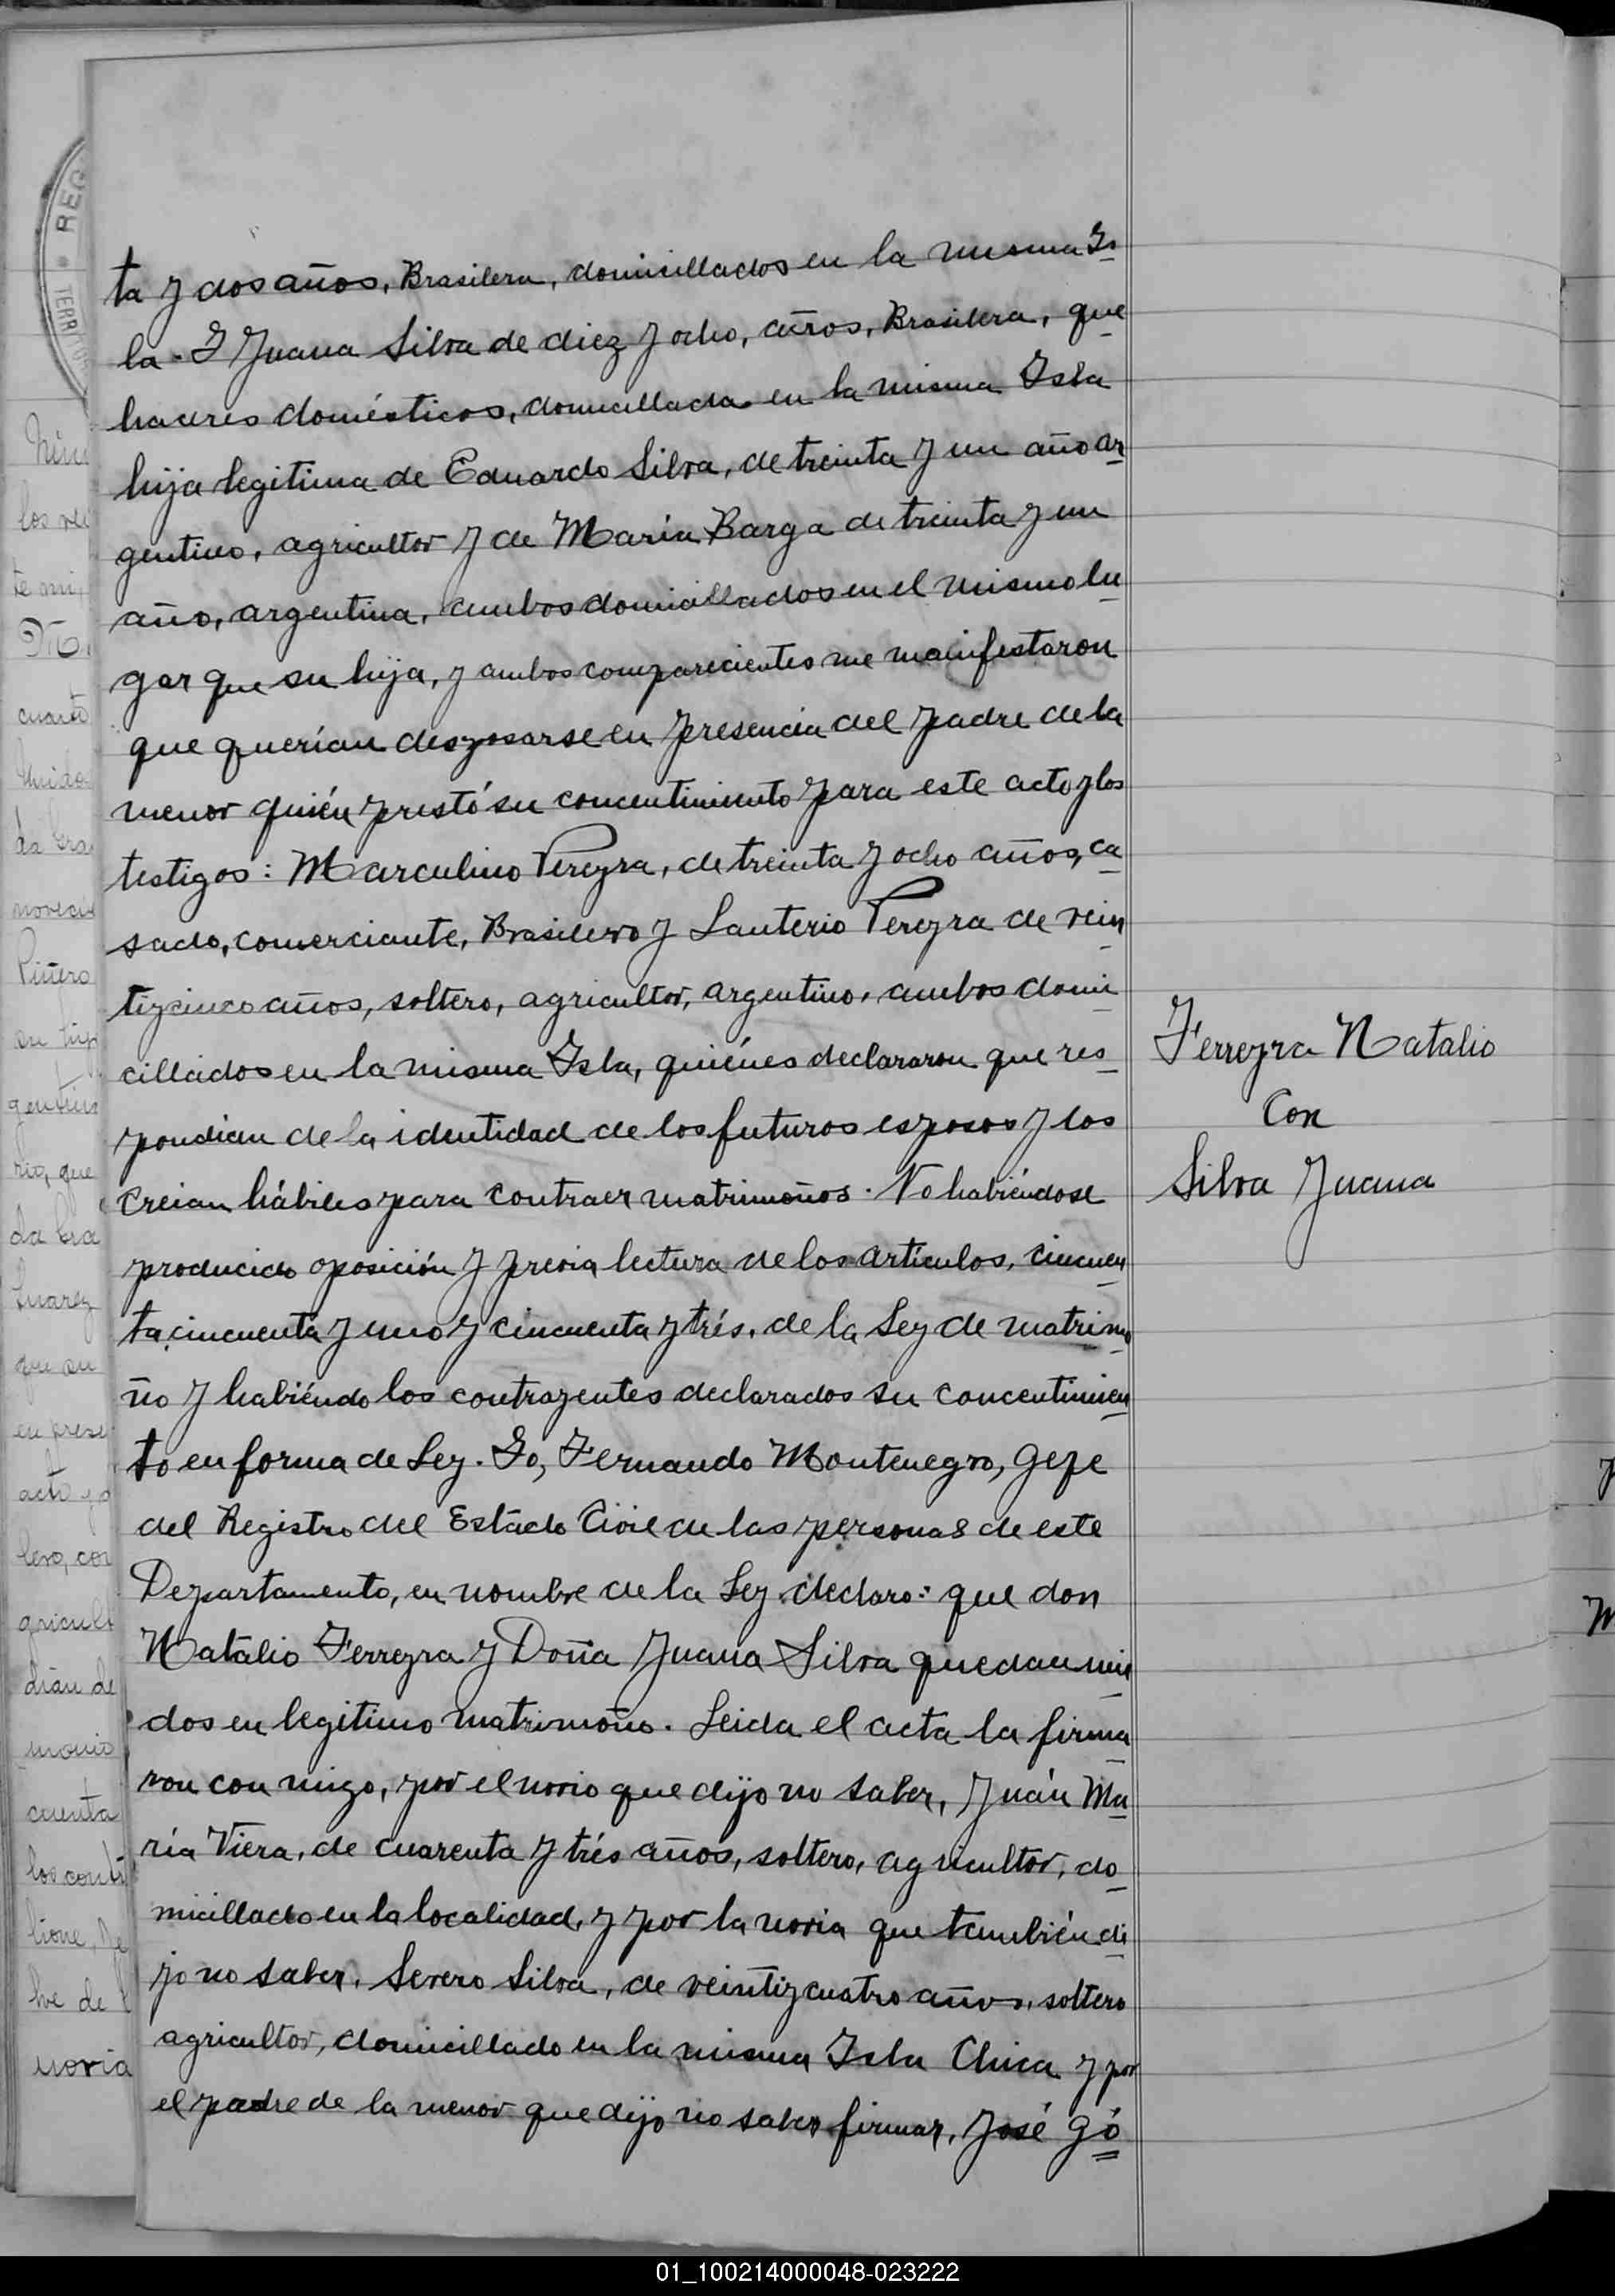 ta y dos años, Brasilera, domicillados en la misma Is
la. I Juana Silva de diez y ocho, años, Brasilera, que
haceres domésticos, domicillada en la misma Isla
hija legitima de Eduardo Silva, de treinta y un año ar
gentino, agricultor y de María Barga de treinta y un
año, argentina, ambos domicillados en el mismo lu
gar que su hija, y ambos comparecientes me manifestaron
que querían desposarse en presencia del padre de la
menor quién prestó su concentimiento para este acto y los
testigos: Marculino Pereyra, de treinta y ocho años, ca
sado, comerciante, Brasilero y Lauterio Pereyra de vein
tizcinco años, soltero, agricultor, argentino, ambos domi
cillados en la misma Isla, quiénes declararon que res
pondian de la identidad de los futuros esposos y los
creian hábiles para contraer matrimoños. No habiéndose
producido oposición y previa lectura de los artículos, cincuen
ta, cincuenta y uno y cincuenta y trés, de la Ley de matrimo
ño y habiéndo los contrayentes declarados su concentimien
to en forma de Ley. Io, Fernando Montenegro, Gefe
del Registro del Estado Civil de las personas de este
Departamento, en nombre de la Ley declaro: que don
Natalio Ferreyra y Doña Juana Silva quedan uni
dos en legitimo matrimoño. Leida el acta la firma
ron con migo, por el novio que dijo no saber, Juán Ma
ría Viera, de cuarenta y trés años, soltero, agricultor, do
micillado en la localidad, y por la novia que también di
jo no saber, Severo Silva, de veintizcuatro años, soltero
agricultor, domicillado en la misma Isla Chica y por
el padre de la menor que dijo no saber firmar, José Gó
Ferreyra Natalio
Con
Silva Juana
REG
TERRI
los
cuarto
Piñero
rio, que
da
Suarez
que su
en prese
acto
lero, con
agricult
dian de
monio
cuenta
los contr
de
novia
01_100214000048-023222